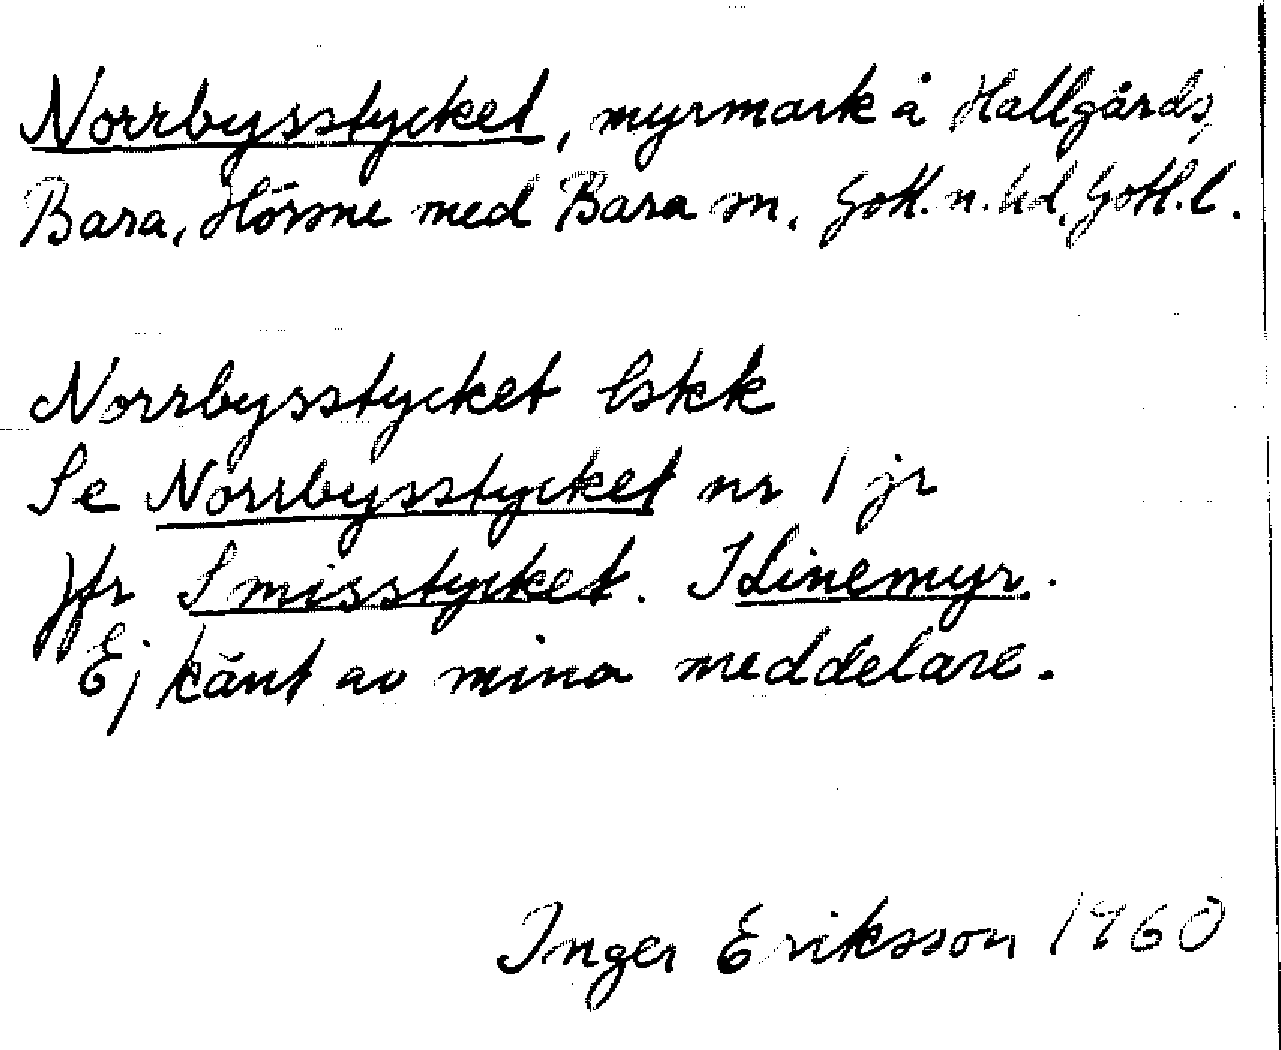 Norrbysstycket, myrmark å Hallgårds,
Bara, Hörsne med Bara sn. Gotl. n. hd, Gotl. l.
Norrbysstycket Eskk
Se Norrbysstycket nr 1 jr
Jfr Smisstycket. I Linemyr.
Ej känt av mina meddelare.
Inger Eriksson 1960